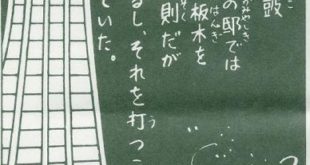 の邸では
板木を
則だが
るし、それを打つこ
ていた。